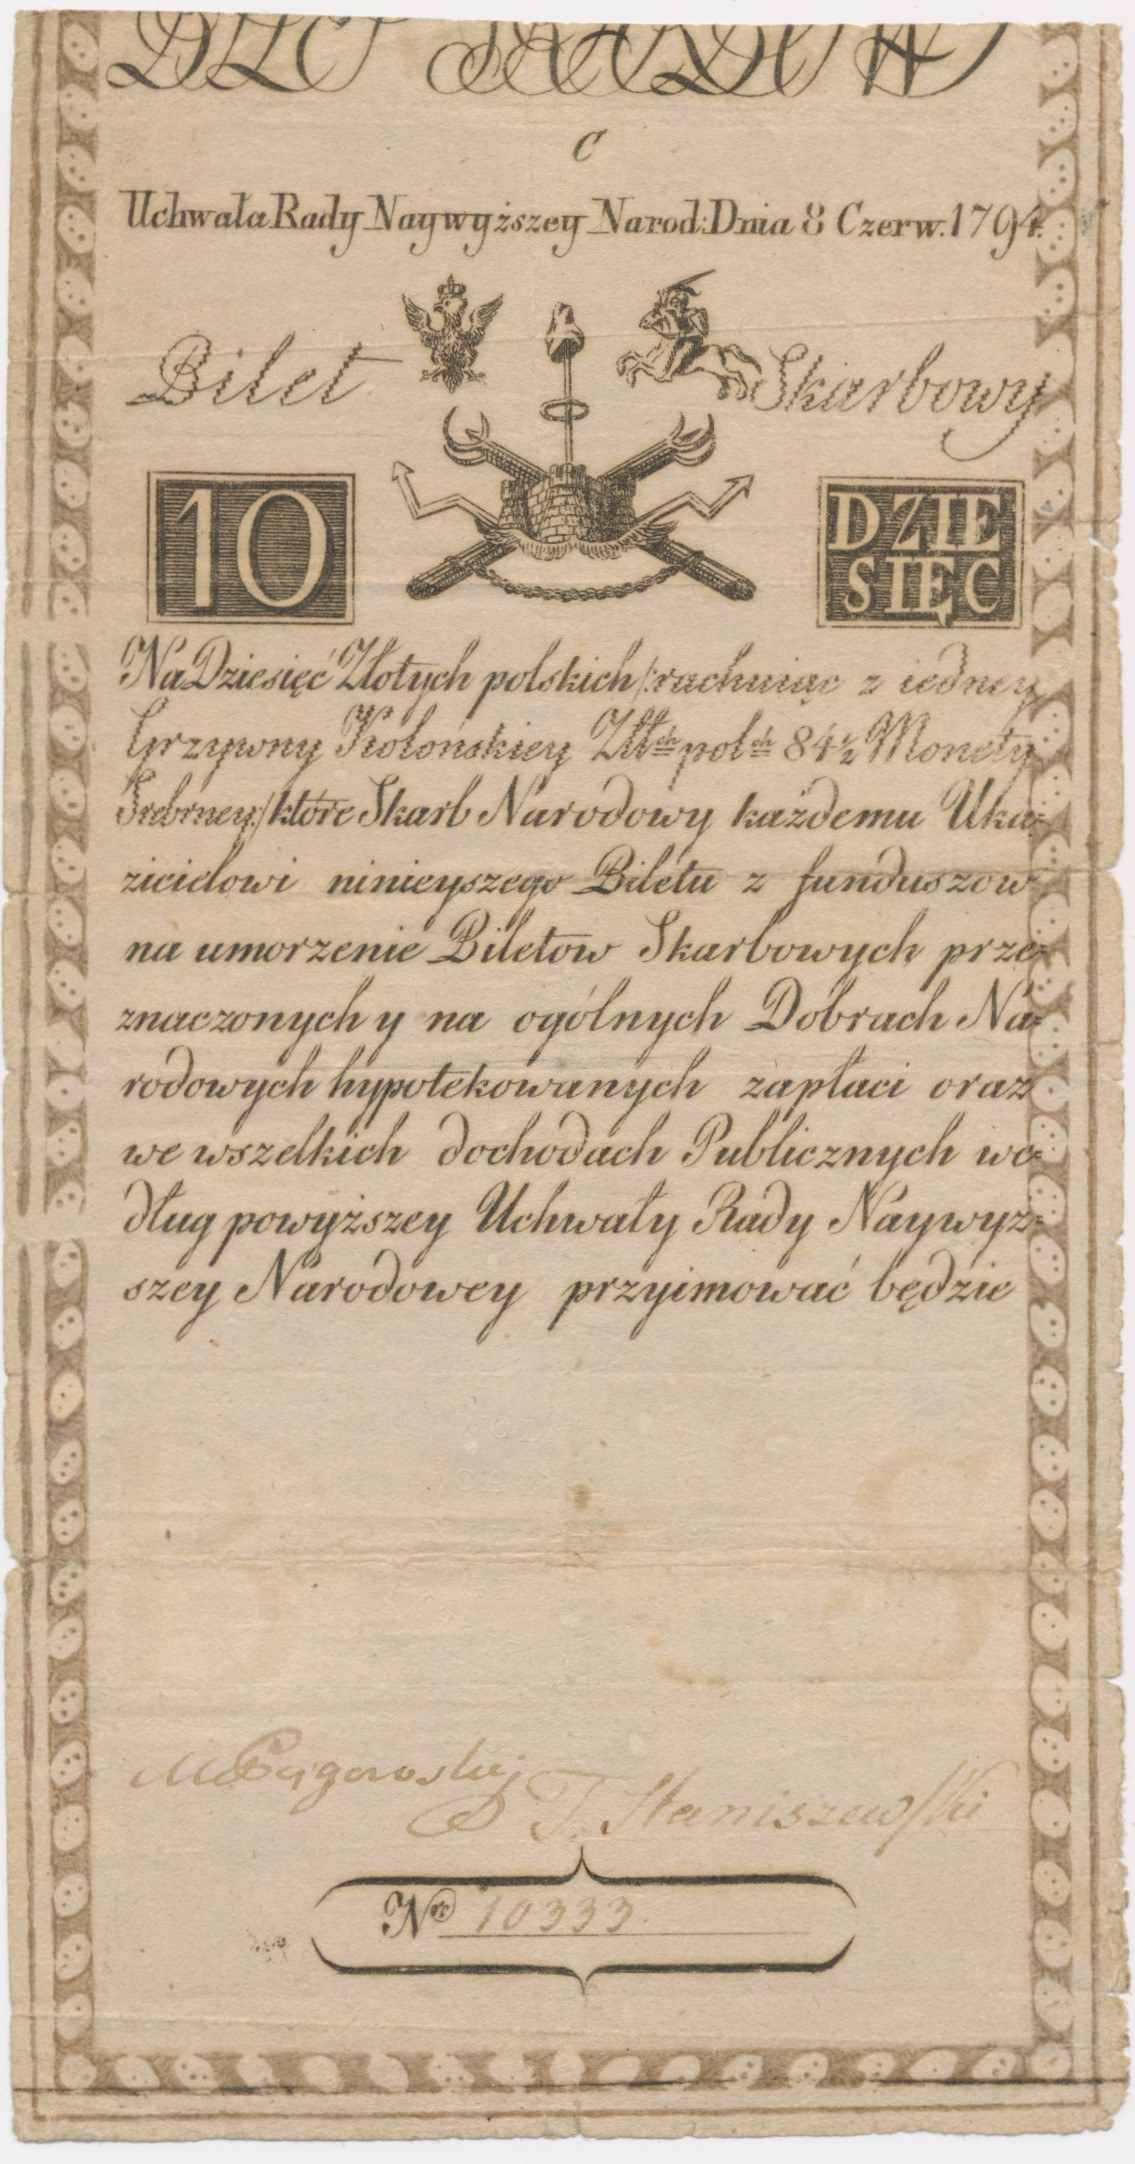 C
Uchwała Rady Naywyższey Narod: Dnia 8 Czerw. 1794.
Bilet Skarbowy
10
DZIE
SIĘC
Na Dziesięć Złotych polskich /: rachuiąc z iedney
Grzywny Kolońskiey Złłch polch 84½ Monety
Srebrney :/ które Skarb Narodowy każdemu Uka=
zicielowi ninieyszego Biletu z funduszow
na umorzenie Biletow Skarbowych prze=
znaczonych y na ogólnych Dobrach Na=
rodowych hypotekowanych zapłaci oraz
we wszelkich dochodach Publicznych we=
dług powyższey Uchwały Rady Naywyż=
szey Narodowey przyimować będzie
T. Staniszewski
Nro 10333.